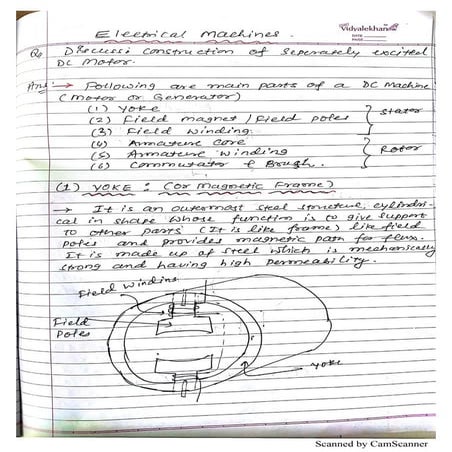 Electrical Machines.
Vidyalekhan
DATE
PAGE
Q. Discuss: construction of Seperately excited
DC Motor.
Ans: → Following are main parts of a DC Machine
(Motor or Generator)
(1) Yoke
(2) Field magnet / Field poles
(3) Field winding
Stator
(4) Armature core
(5) Armature winding
(6) Commutator & Brough.
Rotor
(1) YOKE : (or Magnetic Frame)
→ It is an outermost steel structure, cylindri-
cal in shape whose function is to give support
to other parts (It is like frame) like field
poles and provides magnetic path for flux.
It is made up of steel which is mechanically
strong and having high permeability.
Field winding
Field
Poles
yoke
Scanned by CamScanner